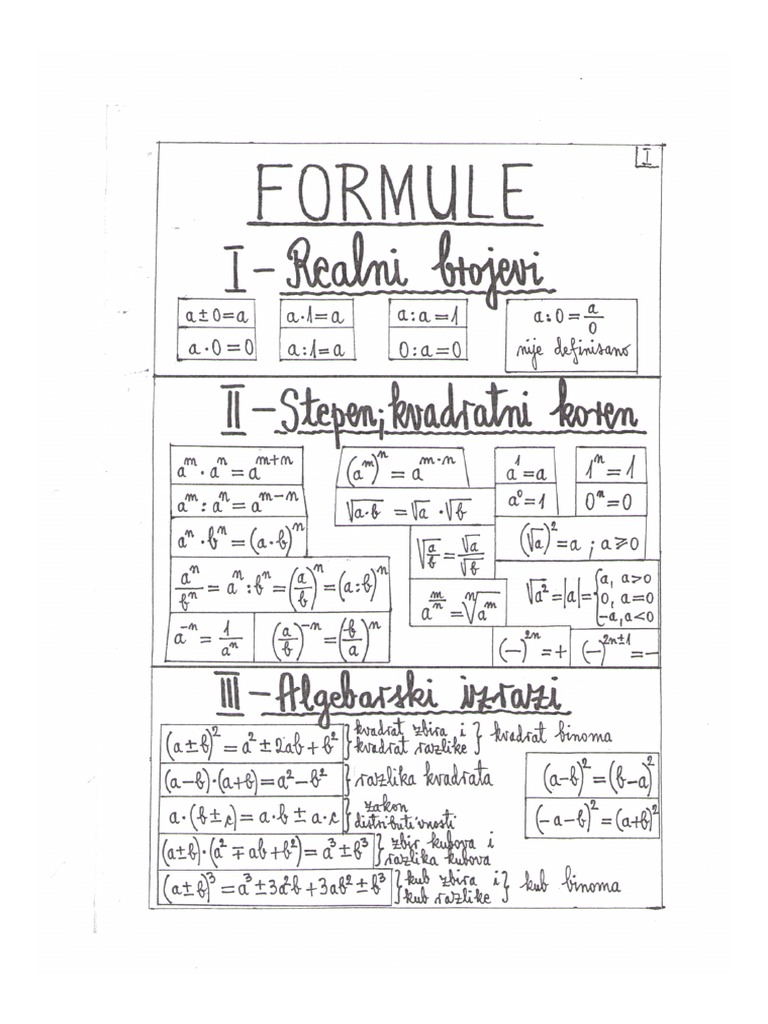 I
FORMULE
I - Realni brojevi
a ± 0 = a
a · 0 = 0
a · 1 = a
a : 1 = a
a : a = 1
0 : a = 0
a : 0 = a/0
nije definisano
II - Stepen; kvadratni koren
aᵐ · aⁿ = aᵐ⁺ⁿ
aᵐ : aⁿ = aᵐ⁻ⁿ
aⁿ · bⁿ = (a · b)ⁿ
aⁿ/bⁿ = aⁿ : bⁿ = (a/b)ⁿ = (a : b)ⁿ
a⁻ⁿ = 1/aⁿ
(a/b)⁻ⁿ = (b/a)ⁿ
(aᵐ)ⁿ = aᵐ·ⁿ
√(a · b) = √a · √b
√(a/b) = √a/√b
a^(m/n) = ⁿ√(aᵐ)
a¹ = a
a⁰ = 1
1ⁿ = 1
0ⁿ = 0
(√a)² = a ; a ≥ 0
√(a²) = |a| = { a, a > 0
0, a = 0
-a, a < 0
(-)²ⁿ = +
(-)^(2n±1) = -
III - Algebarski izrazi
(a ± b)² = a² ± 2ab + b² } kvadrat zbira i
kvadrat razlike } kvadrat binoma
(a - b) · (a + b) = a² - b² } razlika kvadrata
a · (b ± c) = a · b ± a · c } zakon
distributivnosti
(a ± b) · (a² ∓ ab + b²) = a³ ± b³ } zbir kubova i
razlika kubova
(a ± b)³ = a³ ± 3a²b + 3ab² ± b³ } kub zbira i
kub razlike } kub binoma
(a - b)² = (b - a)²
(-a - b)² = (a + b)²